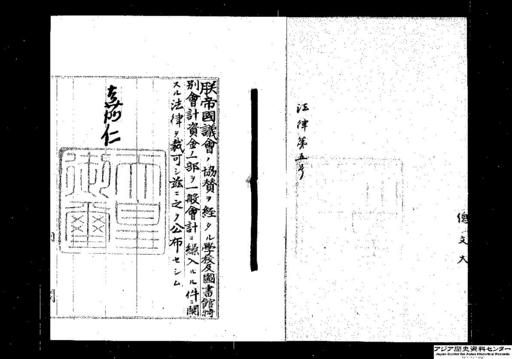 法律第五号
朕帝國議會ノ協賛ヲ経タル学校及圖書館特
別會計資金ノ一部ヲ一般會計ニ繰入ルル件ニ関
スル法律ヲ裁可シ茲ニ之ヲ公布セシム
嘉仁
天皇御璽
アジア歴史資料センター
Japan Center for Asian Historical Records